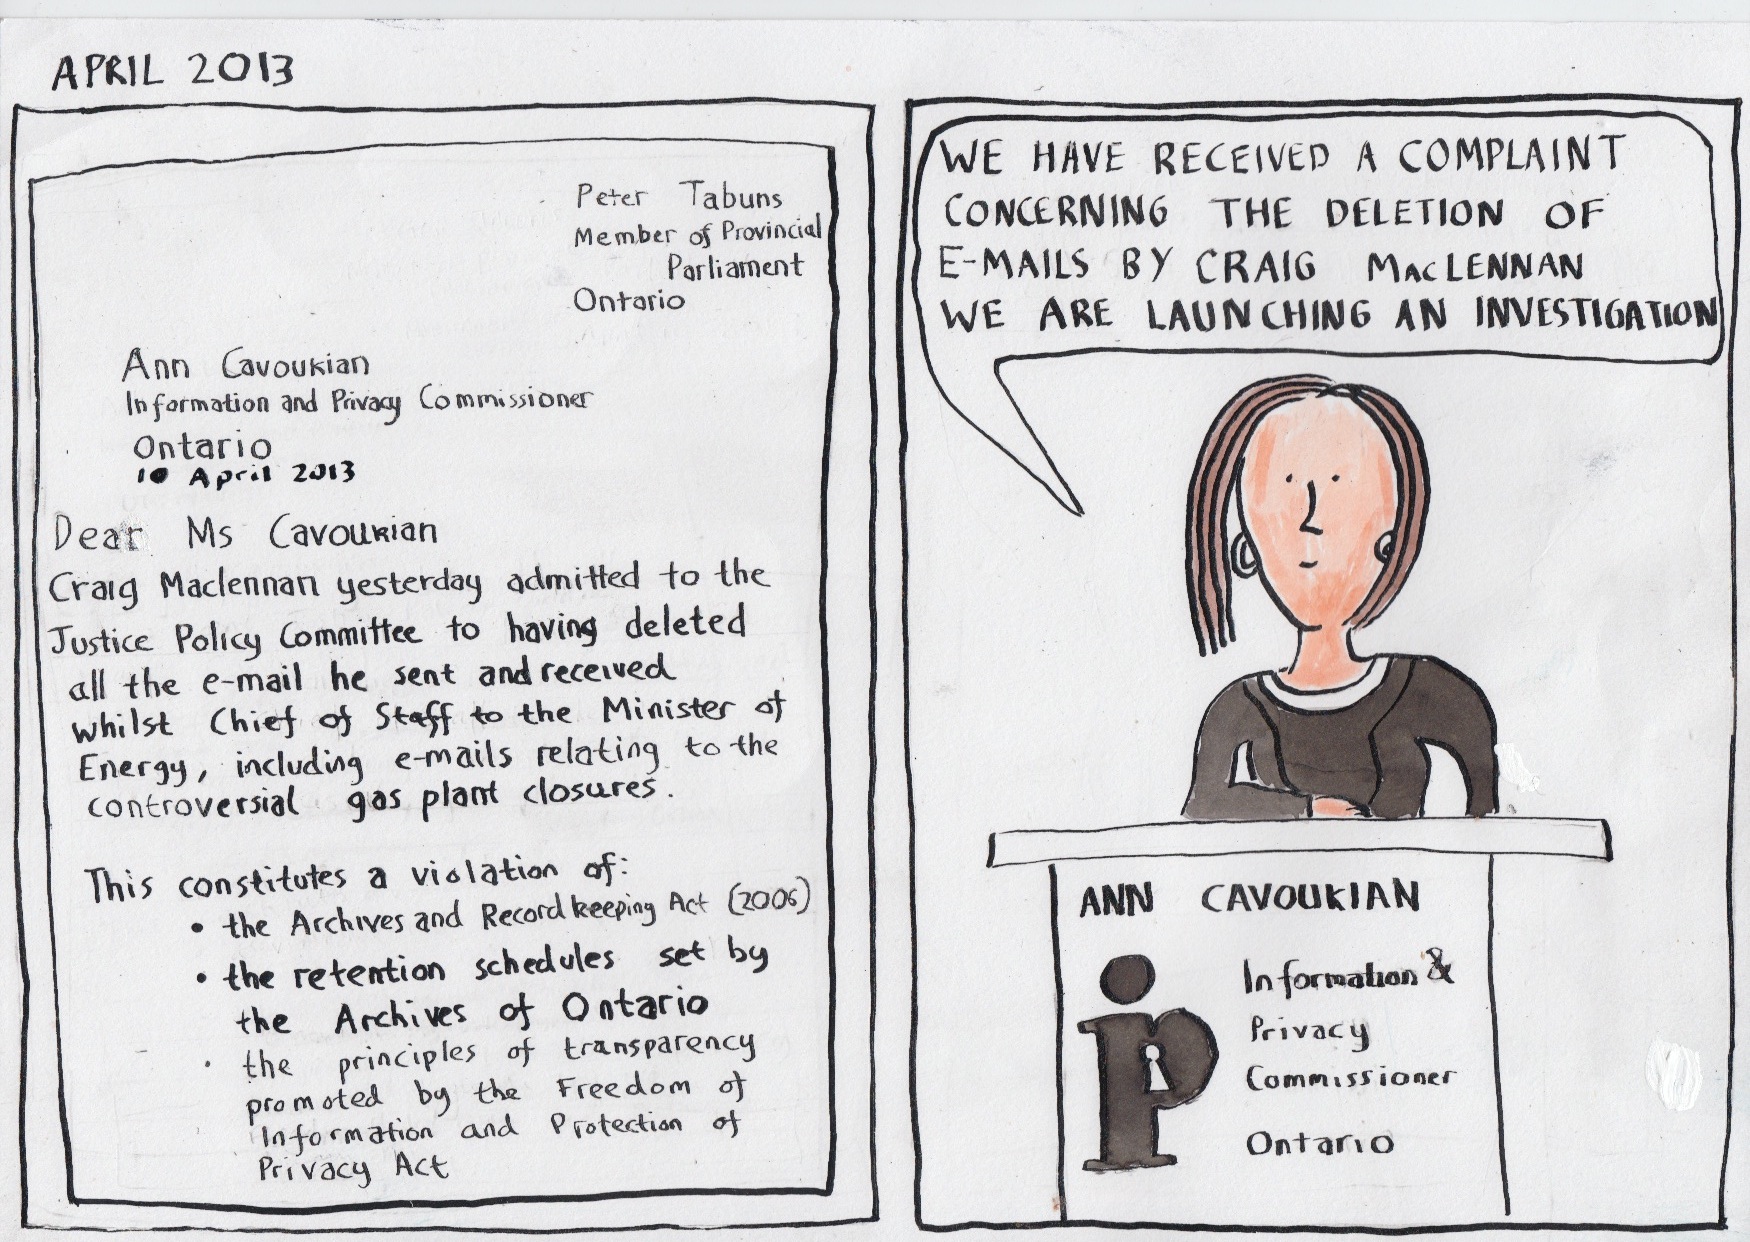 APRIL 2013
Peter Tabuns
Member of Provincial
Parliament
Ontario
Ann Cavoukian
Information and Privacy Commissioner
Ontario
10 April 2013
Dear Ms Cavoukian
Craig Maclennan yesterday admitted to the
Justice Policy Committee to having deleted
all the e-mail he sent and received
whilst Chief of Staff to the Minister of
Energy, including e-mails relating to the
controversial gas plant closures.
This constitutes a violation of:
• the Archives and Recordkeeping Act (2006)
• the retention schedules set by
the Archives of Ontario
• the principles of transparency
promoted by the Freedom of
Information and Protection of
Privacy Act
WE HAVE RECEIVED A COMPLAINT
CONCERNING THE DELETION OF
E-MAILS BY CRAIG MacLENNAN
WE ARE LAUNCHING AN INVESTIGATION
ANN CAVOUKIAN
ip
Information &
Privacy
Commissioner
Ontario